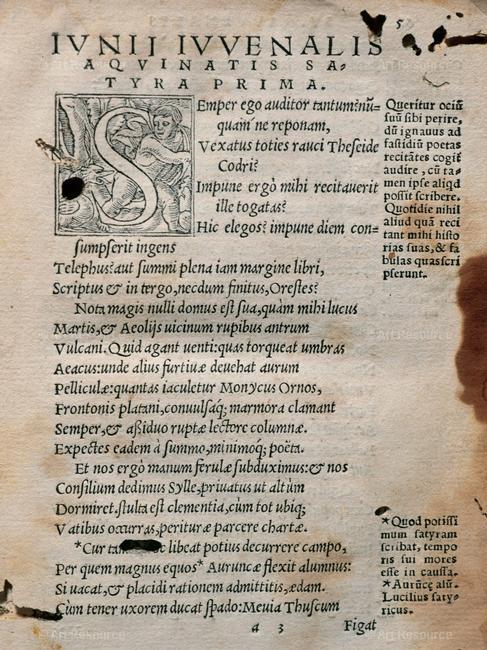 5
IVNII IVVENALIS
AQVINATIS SA-
TYRA PRIMA.
SEmper ego auditor tantum? nũ-
quam´ne reponam,
Vexatus toties rauci Theseide
Codri?
Impune ergò mihi recitauerit
ille togatas?
Hic elegos? impune diem con-
sumpserit ingens
Telephus? aut summi plena iam margine libri,
Scriptus & in tergo, necdum finitus, Orestes?
Nota magis nulli domus est sua, quàm mihi lucus
Martis, & Aeolijs uicinum rupibus antrum
Vulcani. Quid agant uenti: quas torqueat umbras
Aeacus: unde alius furtiuæ deuehat aurum
Pelliculæ: quantas iaculetur Monycus Ornos,
Frontonis platani, conuulsaq; marmora clamant
Semper, & aßiduo ruptæ lectore columnæ.
Expectes eadem à summo, minimoq; poëta.
Et nos ergò manum ferulæ subduximus: & nos
Consilium dedimus Syllæ, priuatus ut altùm
Dormiret. stulta est clementia, cum tot ubiq;
Vatibus occurras, perituræ parcere chartæ.
*Cur libeat potius decurrere campo,
Per quem magnus equos* Auruncæ flexit alumnus:
Si uacat, & placidi rationem admittitis, ædam.
Cùm tener uxorem ducat spado: Meuia Thuscum
a 3
Figat
Queritur ociũ
suũ sibi perire,
dũ ignauus ad
fastidiũ poetas
recitãtes cogit̃
audire, cũ ta-
men ipse aliqd
possit scribere.
Quotidie nihil
aliud quã reci
tant mihi histo
rias suas, & fa
bulas quas scri
pserunt.
*Quod potissi
mum satyram
scribat, tempo
ris sui mores
esse in caussa.
*Aurũcæ alũ.
Lucilius saty-
ricus.
Art Resource